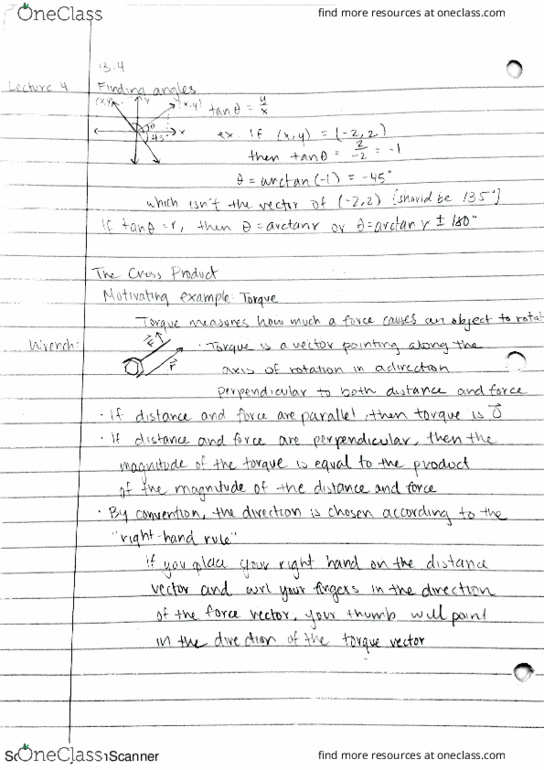 OneClass find more resources at oneclass.com
13.4
Lecture 4 Finding angles
(x,y) y (x,y) tanθ = y/x
θ 45° x ex. If (x,y) = (-2,2)
then tanθ = 2/-2 = -1
θ = arctan(-1) = -45°
which isn't the vector of (-2,2) [should be 135°]
If tanθ = r, then θ = arctan r or θ = arctan r ± 180°
The Cross Product
Motivating example: Torque
Torque measures how much a force causes an object to rotat
Wrench: F r · Torque is a vector pointing along the
axis of rotation in a direction
perpendicular to both distance and force
· If distance and force are parallel, then torque is 0⃗
· If distance and force are perpendicular, then the
magnitude of the torque is equal to the product
of the magnitude of the distance and force
· By convention, the direction is chosen according to the
"right-hand rule"
if you place your right hand on the distance
vector and curl your fingers in the direction
of the force vector, your thumb will point
in the direction of the torque vector
OneClass Scanner find more resources at oneclass.com